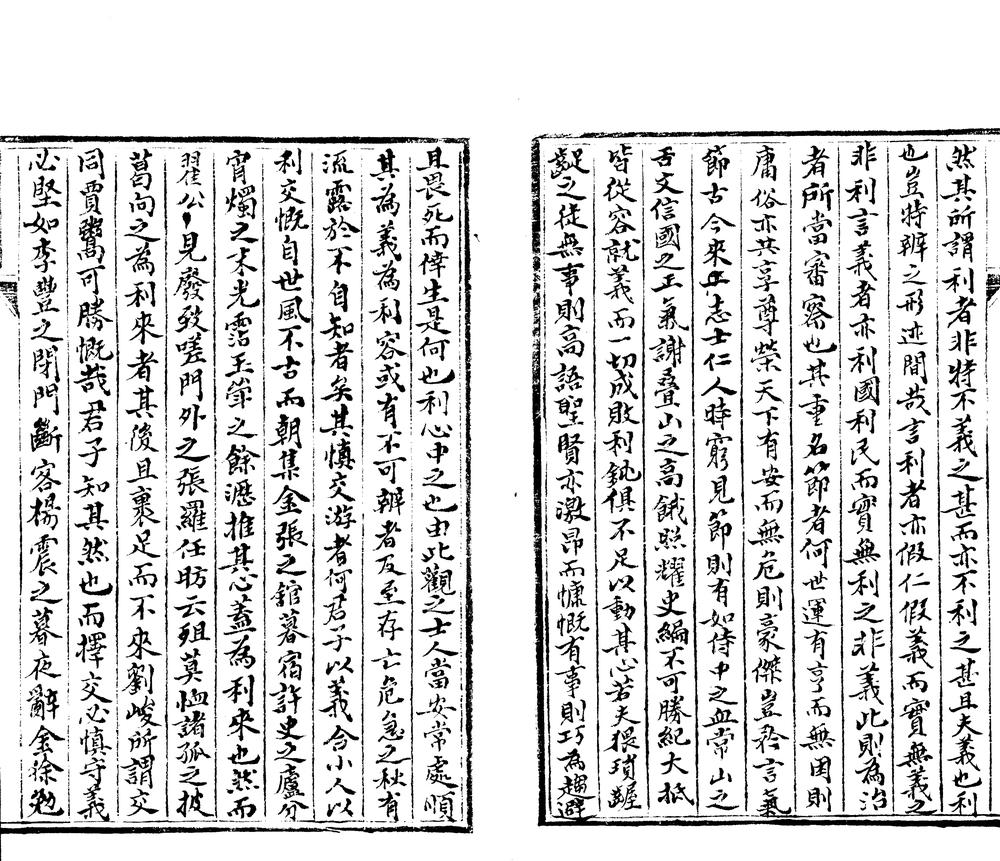 然其所謂利者非特不義之甚而亦不利之甚且夫義也利
也豈特辨之形迹間哉言利者亦假仁假義而實無義之
非利言義者亦利國利民而實無利之非義此則為治
者所當審察也其重名節者何世運有亨而無困則
庸俗亦共享尊榮天下有安而無危則豪傑豈矜言氣
節古今來正志士仁人時窮見節則有如侍中之血常山之
舌文信國之正氣謝疊山之高餓照耀史編不可勝紀大抵
皆從容就義而一切成敗利鈍俱不足以動其心若夫猥瑣齷
齪之徒無事則高語聖賢亦激昂而慷慨有事則巧為趨避
且畏死而倖生是何也利心中之也由此觀之士人當安常處順
其為義為利容或有不可辨者及至存亡危急之秋有
流露於不自知者矣其慎交游者何君子以義合小人以
利交慨自世風不古而朝集金張之館暮宿許史之廬分
宵燭之末光霑玉斝之餘瀝推其心蓋為利來也然而
翟公見廢致嗟門外之張羅任昉云殂莫恤諸孤之披
葛向之為利來者其後且裹足而不來劉峻所謂交
同賈鬻可勝慨哉君子知其然也而擇交必慎守義
必堅如李豐之閉門斷客楊震之暮夜辭金徐勉